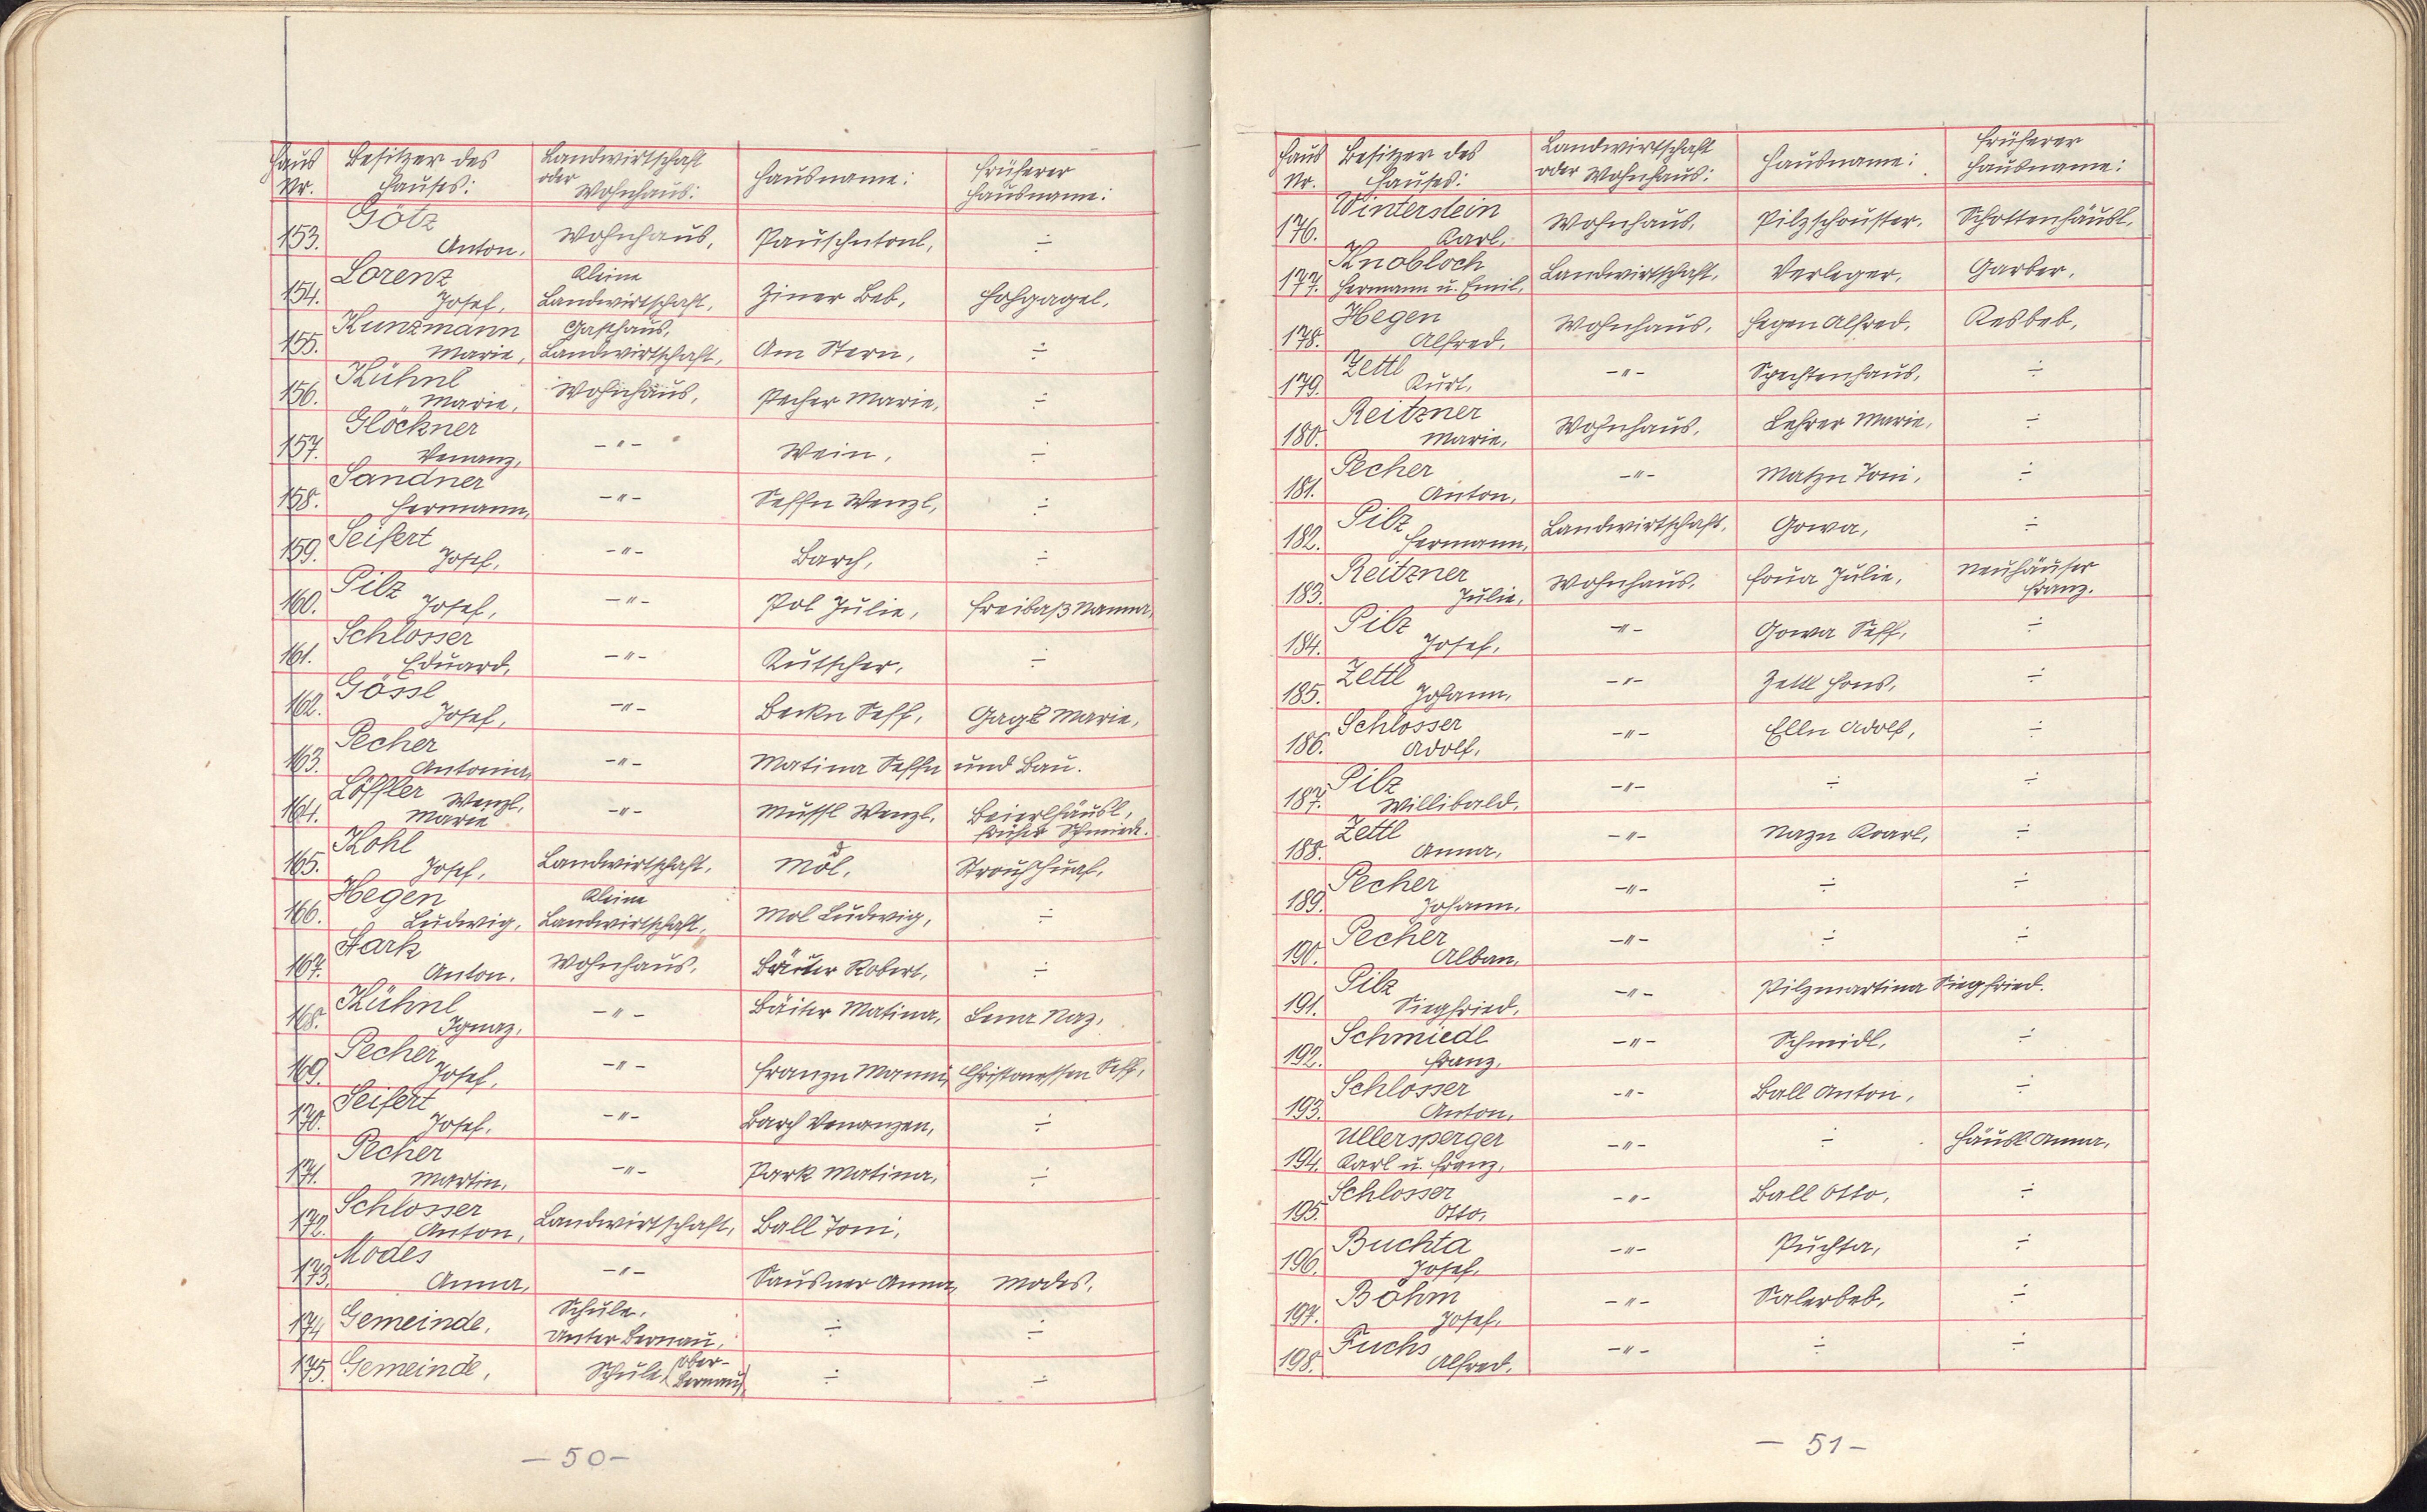 Haus Nr. Besitzer des Hauses: Landwirtschaft oder Wohnhaus: Hausname: Früherer Hausname:
153. Götz Anton. Wohnhaus, Pauschntonl, ÷
154. Lorenz Josef, Kleine Landwirtschaft, Ziner Beb, Hohgagel,
155. Kunzmann Marie, Gasthaus, Landwirtschaft, Am Stern, ÷
156. Kühnl Marie, Wohnhaus, Pecher Marie, ÷
157. Glöckner Venanz, -"- Wein, ÷
158. Sandner Hermann, -"- Seffn Wenzl, ÷
159. Seifert Josef, -"- Barch, ÷
160. Pilz Josef, -"- Pol Julie, Freibaß Nanna,
161. Schlosser Eduard, -"- Kutscher, ÷
162. Gössl Josef, -"- Beckn Seff, Gagl Marie,
163. Pecher Antonia, -"- Matina Seffn und Bau.
164. Löffler Wenzl, Marie -"- Mussl Wenzl, Beierlhäusl, früher Schmiede.
165. Kohl Josef, Landwirtschaft, Möl,
166. Hegen Ludwig, Kleine Landwirtschaft, Mol Ludwig, ÷
167. Stark Anton, Wohnhaus, Robert, ÷
168. Kühnl Ignaz, -"- Bäiter Matina, Lena Naz,
169. Pecher Josef, -"- Franzn Manni, Seff,
170. Seifert Josef. -"- Barch Venanzen, ÷
171. Pecher Martin, -"- Park Matina, ÷
172. Schlosser Anton, Landwirtschaft, Ball Toni,
173. Modes Anna, -"- Sausner Anna, Modes,
174 Gemeinde, Schule. Unter Bernau, ÷ ÷
175. Gemeinde, Schule, (Ober-Bernau) ÷ ÷
-50-
Haus Nr. Besitzer des Hauses: Landwirtschaft oder Wohnhaus: Hausname: Früherer Hausname:
176. Winterstein Karl, Wohnhaus, Pilzschouster, Schottenhäusl,
177. Knobloch Hermann u. Emil, Landwirtschaft, Verleger, Garber,
178. Hegen Alfred, Wohnhaus, Hegen Alfred, Kesbeb,
179. Zettl Kurt, -"- Spechtenhaus, ÷
180. Reitzner Marie, Wohnhaus, Lehrer Marie, ÷
181. Pecher Anton, -"- Matzn Toni, ÷
182. Pilz Hermann, Landwirtschaft, Gowa, ÷
183. Reitzner Julie, Wohnhaus, Houa Julie, Neuhäuser Franz.
184. Pilz Josef, -"- Gowa Seff, ÷
185. Zettl Johann, -"- Zettl Hons, ÷
186. Schlosser Adolf, -"- Elln Adolf, ÷
187. Pilz Willibald, -"- ÷ ÷
188. Zettl Anna, -"- Nazn Koarl, ÷
189. Pecher Johann, -"- ÷ ÷
190. Pecher Alban, -"- ÷ ÷
191. Pilz Siegfried, -"- Pilzmartina Siegfried.
192. Schmiedl Franz, -"- Schmidl, ÷
193. Schlosser Anton, -"- Ball Anton, ÷
194. Ullersperger Karl u. Franz, -"- ÷ Häusl Anna,
195. Schlosser Otto, -"- Ball Otto, ÷
196. Buchta Josef, -"- Puchta, ÷
197. Böhm Josef, -"- Salerbeb, ÷
198. Fuchs Alfred. -"- ÷ ÷
-51-